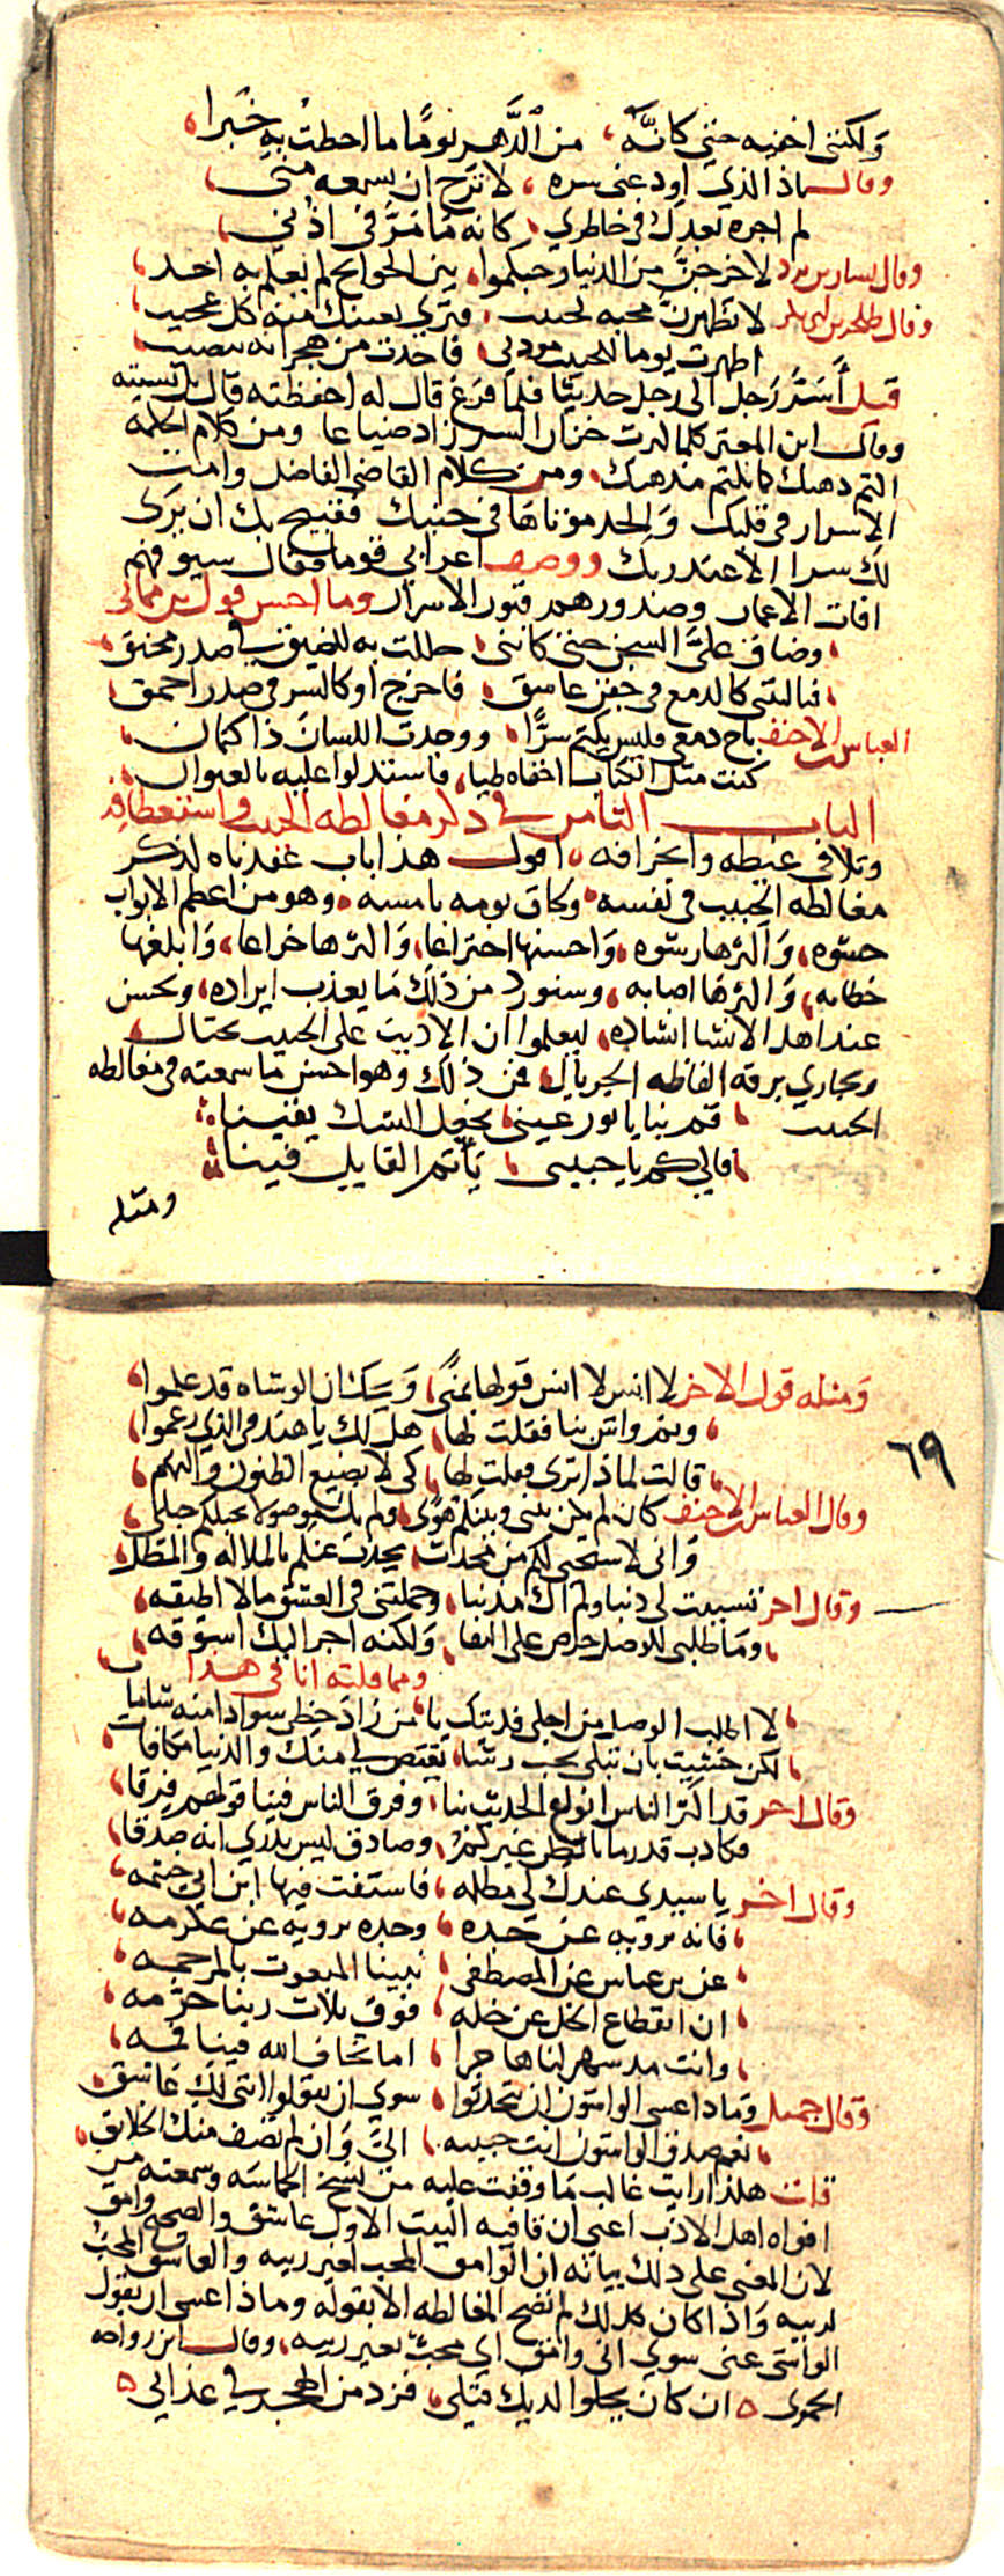 ولكنني اخفيه حتى كانه من الدهر يوما ما احطت به خبرا
وقال ماذا الذي اودعني سره لا ترج ان يسمعه مني
لم اجره بعدك في خاطري كانه ما مر في اذني
وقال بشار بن برد لاخرجن من الدنيا وحبكموا بين الجوانح لم يعلم به احد
وقال طلحة بن لا تظهرن محبه لحبيب فترى بعينك منه كل عجيب
اظهرت يوما للحبيب مودتي فاخذت من هجرانه بنصيب
قيل أسر رجل الى رجل حديثا فلما فرغ قال له احفظته قال بل نسيته
وقال ابن المعتز كلما كثرت خزان السر زاد ضياعا ومن كلام الحكمة
اكتم ذهبك كما تكتم مذهبك ومن كلام القاضي الفاضل وامت
الاسرار في قلبك والحد موتاها في جنبك فقبيح بك ان يرى
لك سرا الا عند ربك ووصف اعرابي قوما فقال سيوفهم
افات الاعمار وصدورهم قبور الاسرار وما احسن قول بن مماتي
وضاق علي السجن حتى كانني حللت به للضيق في صدر محنق
فياليتني كالدمع في جفن عاشق فاخرج او كالسر في صدر احمق
العباس بن الاحنف باح دمعي فليس يكتم سرا ووجدت اللسان ذا كتمان
كنت مثل الكتاب اخفاه طيا فاستدلوا عليه بالعنوان
الباب الثامن في ذكر مغالطه الحبيب واستعطافه
وتلافي غيظه وانحرافه اقول هذا باب عقدناه لذكر
مغالطه الحبيب في نفسه وكاق يومه بامسه وهو من اعظم الابواب
حشوه واكثرها رشوه واحسنها اختراعا واكثرها خراعا وابلغها
خطابه واكثرها اصابه وسنورد من ذلك ما يعذب ايراده ويحسن
عند اهل الانشا انشاده ليعلموا ان الاديب على الحبيب يحتال
ويجاري برقه الفاظه الجريال فمن ذلك وهو احسن ما سمعته في مغالطه
الحبيب قم بنا يا نور عيني نجعل الشك يقينا
فالي كم يا حبيبي يأثم القايل فينا
ومثله
ومثله قول الاخر لا انس لا انس قولها بمنى ويك ان الوشاه قد علموا
ونم واش بنا فقلت لها هل لك يا هند في الذي زعموا
قالت لماذا ترى فقلت لها كي لا يضيع الظنون والتهم
٦٩
وقال العباس بن الاحنف كان لم يكن بيني وبينكم هوى ولم يك موصولا بحبلكم حبلي
واني لاستحي لكم من محدث يحدث عنكم بالملاله والمطل
وقال اخر تنسبت لي ذنبا ولم اك مذنبا وحملتني في العشق ما لا اطيقه
وما طلبي للوصل حرص على البقا ولكنه اجر اليك اسوقه
ومما قلته انا في هذا
لا اطلب الوصل من اجلي فديتك يا من زاد حظي سوادا منه شامات
لكن خشيت بان تبلى بحب رشا يقتص لي منك والدنيا مكافات
وقال اخر قد اكثر الناس انواع الحديث بنا وفرق الناس فينا قولهم فرقا
فكاذب قد رما بالظن غيركم وصادق ليس يدري انه صدقا
وقال اخر يا سيدي عندك لي مظلمه فاستفت فيها ابن ابي خيثمه
فانه يرويه عن جده وجده يرويه عن عكرمه
عن بن عباس عن المصطفى نبينا المبعوث بالمرحمه
ان انقطاع الخل عن خله فوق ثلاث ربنا حرمه
وانت مذ شهر لنا هاجرا اما تخاف الله فينا فمه
وقال جميل وماذا عسى الواشون ان يتحدثوا سوى ان يقولوا انني لك عاشق
نعم صدق الواشون انت حبيبه الي وان لم تصف منك الخلايق
قلت هكذا رايت غالب ما وقفت عليه من نسخ الحماسه وسمعته من
افواه اهل الادب اعني ان قافيه البيت الاول عاشق والصحيح وامق
لان المعنى على ذلك بيانه ان الوامق المحب لغير ريبه والعاشق المحب
لريبه واذا كان كذلك لم تصح المغالطه الا بقوله وماذا عسى ان يقول
الواشي عني سوى اني وامق اي محب لغير ريبه وقال ابن رواحه
الحموي ان كان يحلوا لديك قتلي فزد من الهجر في عذابي